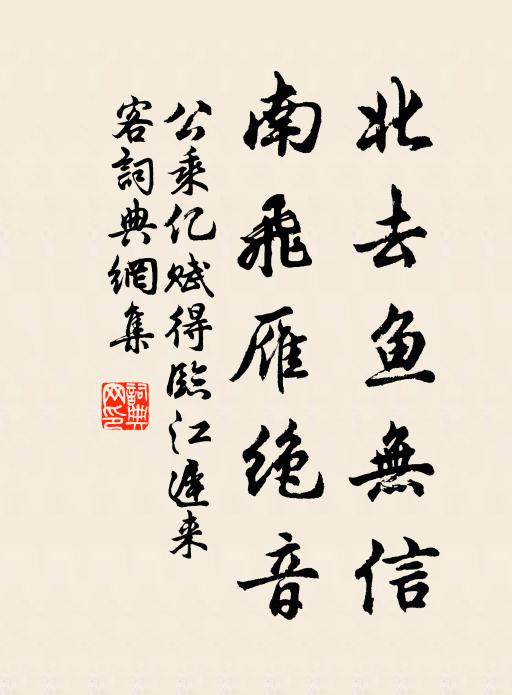 北去鱼無信
南飛雁绝音
公乘亿赋得臨江遲来
客詞典網集
詞典网印